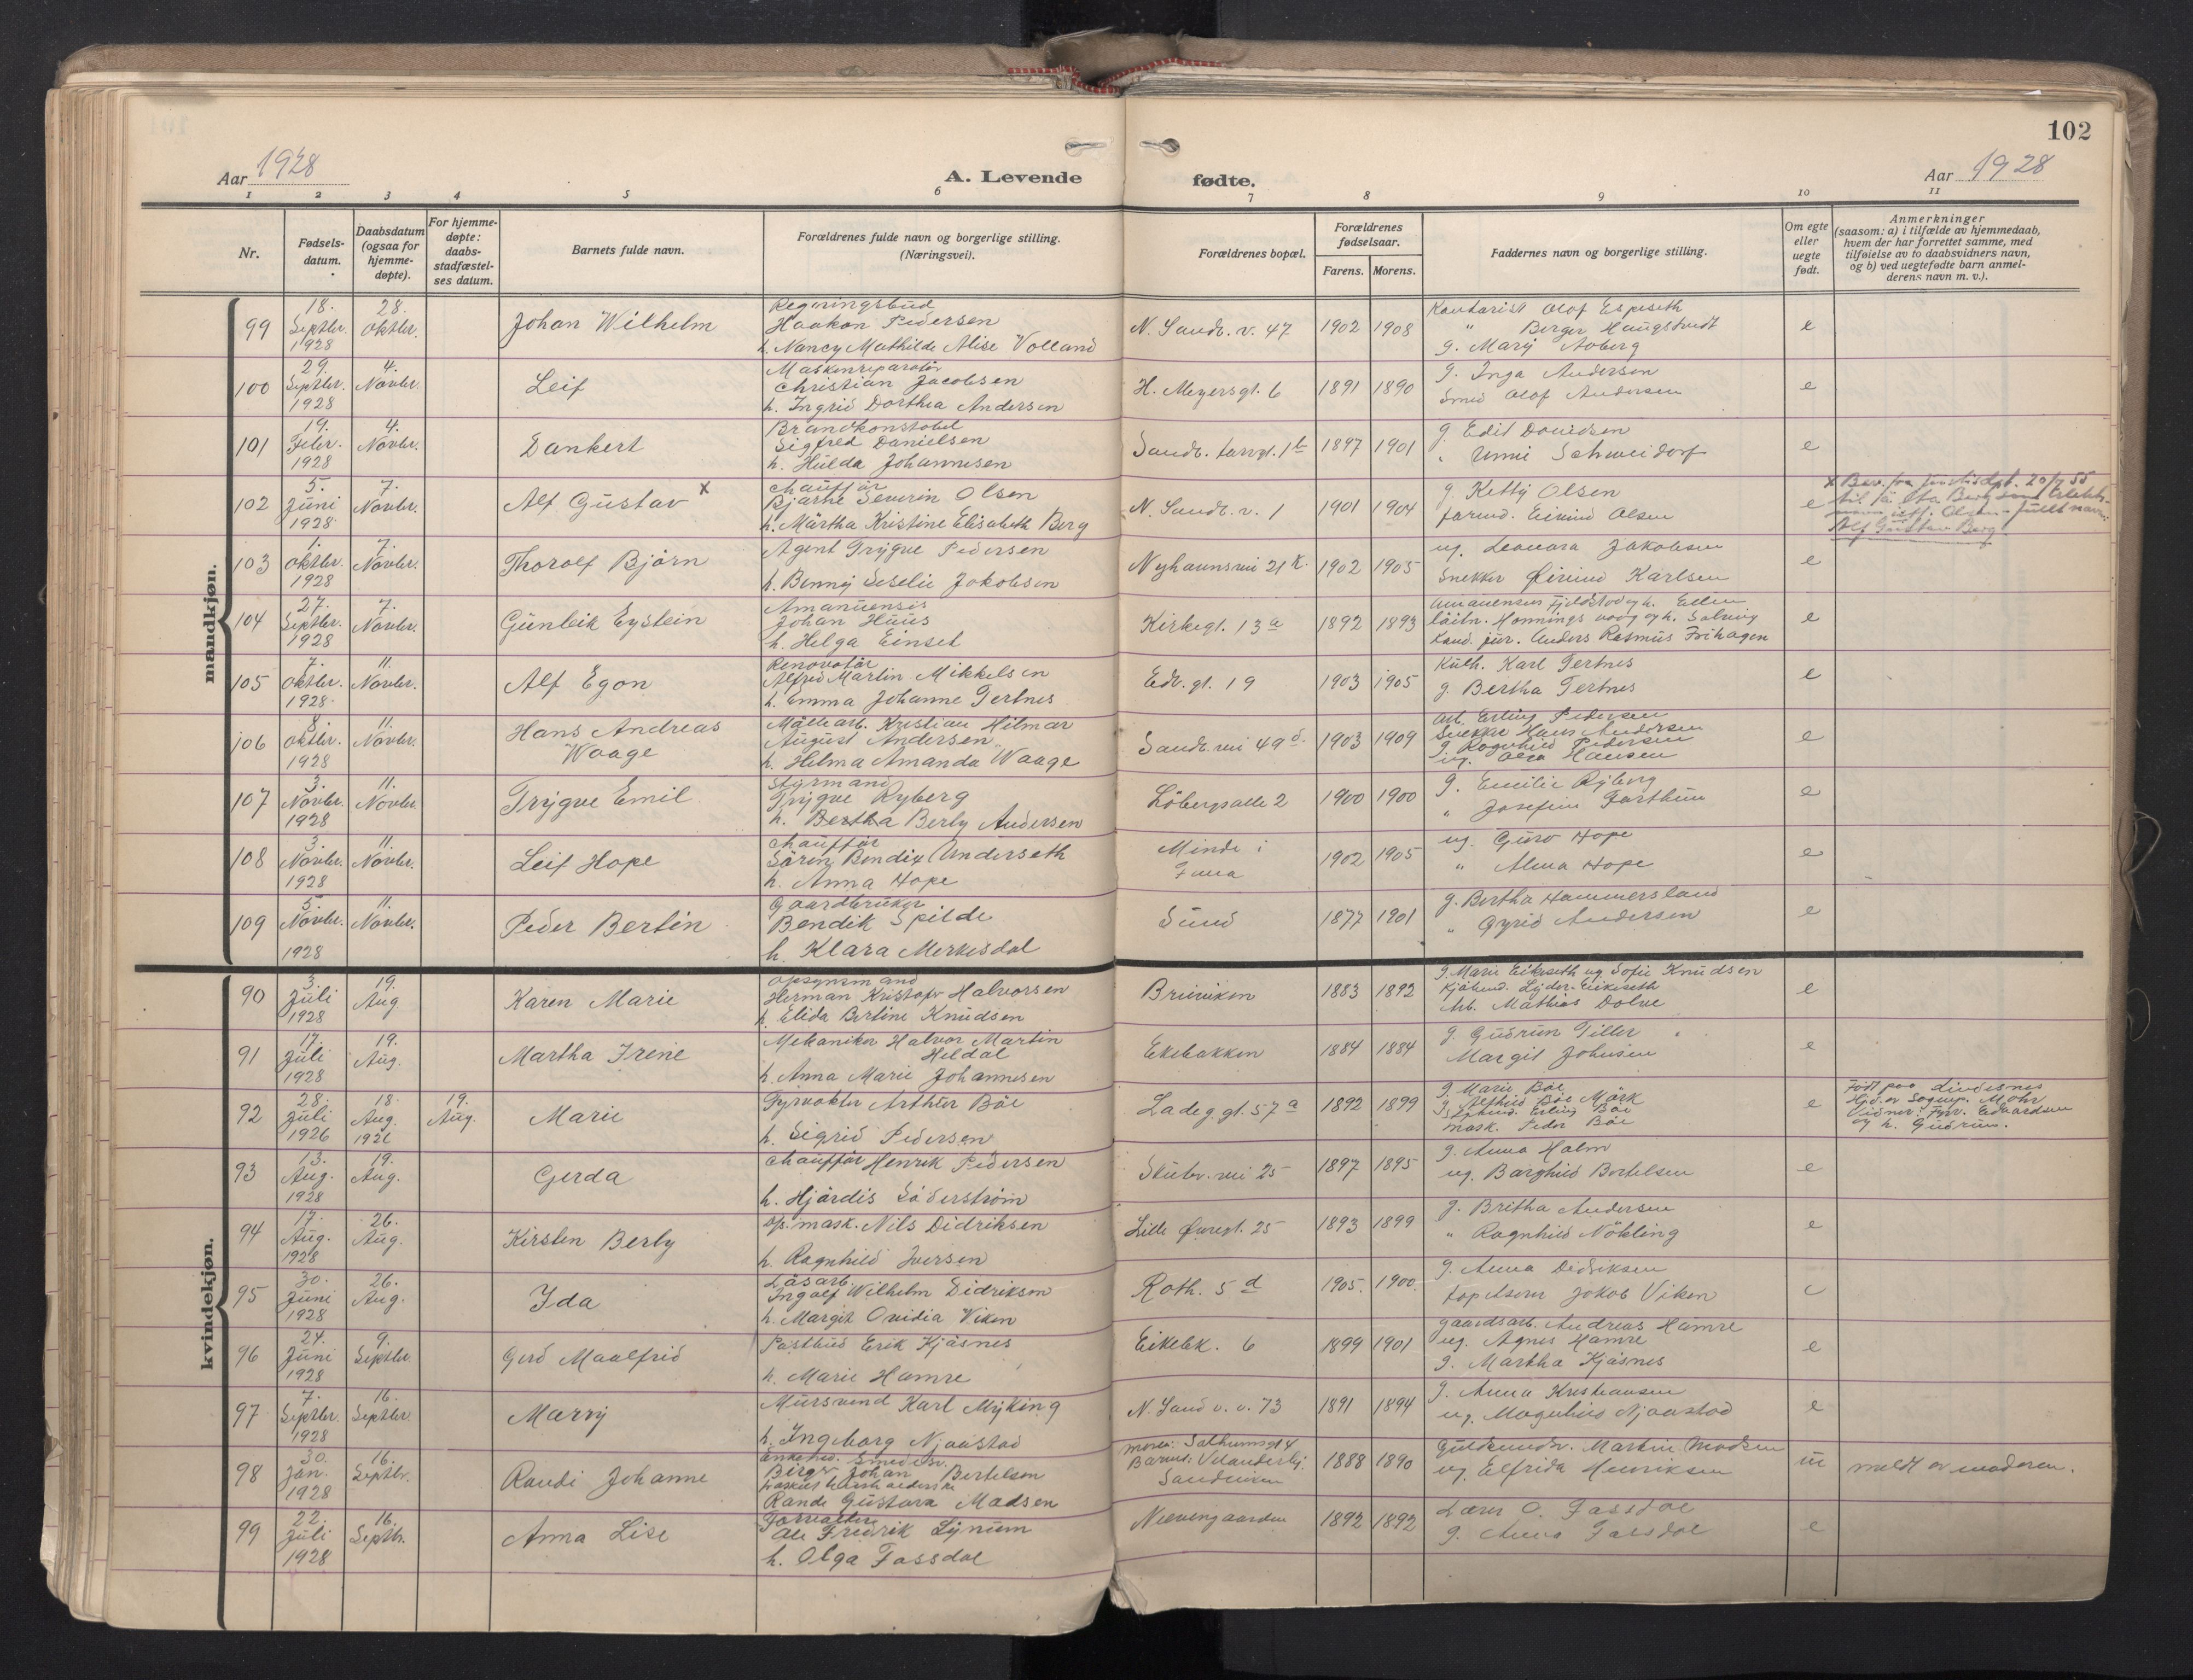 102
Aar 1928
A. Levende
fødte.
Aar 1928
1 2 3 4 5 6 7 8 9 10 11
Nr.
Fødsels-
datum.
Daabsdatum
(ogsaa for
hjemme-
døpte).
For hjemme-
døpte:
daabs-
stadfæstel-
ses datum.
Barnets fulde navn.
Forældrenes fulde navn og borgerlige stilling.
(Næringsvei).
Forældrenes bopæl.
Forældrenes
fødselsaar.
Farens. Morens.
Faddernes navn og borgerlige stilling.
Om egte
eller
uegte
født.
Anmerkninger
(saasom: a) i tilfælde av hjemmedaab,
hvem der har forrettet samme, med
tilføielse av to daabsvidners navn,
og b) ved uegtefødte barn anmel-
derens navn m. v.).
mandkjøn.
99
18.
Septbr.
1928
28.
Oktbr.
Johan Wilhelm
Regeringsbud
Haakon Pedersen
h. Nancy Mathilde Alise Volland
N. Sandv. v. 47
1902 1908
Kontorist Olof Espeseth
" Berger Haugstvedt
g. Mary Aaberg
e
100
29.
Septbr.
1928
4.
Novbr.
Leif
Maskinreparatör
Christian Jacobsen
h. Ingrid Dorthea Andersen
H. Meyersgt. 6
1891 1890
g. Inga Andersen
Smed Olof Andersen
e
101
19.
Febr.
1928
4.
Novbr.
Dankert
Brandkonstabel
Sigfred Danielsen
h. Hulda Johannesen
Sandv. torvgt. 1b
1897 1901
g. Edit Davidsen
e
102
5.
Juni
1928
7.
Novbr.
Alf Gustav x
Chaufför
Bjarne Severin Olsen
h. Märtha Kristine Elisabeth Berg
N. Sandv. v. 1
1901 1904
g. Ketty Olsen
Eivind Olsen
e
Alf Gustav Berg
103
1.
Oktbr.
1928
7.
Novbr.
Thorolf Björn
Agent Trygve Pedersen
h. Benny Seselie Jakobsen
Nyhavnsvei 21 k.
1902 1905
ug. Leonora Jakobsen
Snekker Øivind Karlsen
e
104
27.
Septbr.
1928
7.
Novbr.
Gunleik Eystein
Amanuensis
Johan Huus
h. Helga Einset
Kirkegt. 13a
1892 1893
Kand. jur. Anders Rasmus Frihagen
e
105
7.
Oktbr.
1928
11.
Novbr.
Alf Egon
Renovatör
Alfred Martin Mikkelsen
h. Emma Johanne Tertnes
Edv. gt. 19
1903 1905
Karl Tertnes
g. Bertha Tertnes
e
106
8.
Oktbr.
1928
11.
Novbr.
Hans Andreas
Waage
Möllearb. Kristian Hilmar
August Andersen
h. Helma Amanda Waage
Sandv. vei 49d.
1903 1909
Arb. Erling Pedersen
Snekker Hans Andersen
g. Ragnhild Pedersen
ug. Olga Hansen
e
107
3.
Novbr.
1928
11.
Novbr.
Trygve Emil
Styrmand
Trygve Ryberg
h. Bertha Berly Andersen
Löbergsalle 2
1900 1900
g. Emilie Ryberg
" Josefine Forthun
e
108
3.
Novbr.
1928
11.
Novbr.
Leif Hope
Chaufför
Sören Bendix Underseth
h. Anna Hope
Minde i
Fana
1902 1905
ug. Guro Hope
" Alma Hope
e
109
5.
Novbr.
1928
11.
Novbr.
Peder Bertin
Gaardbruker
Bendik Spilde
h. Klara Merkesdal
Sund
1877 1901
g. Bertha Hammersland
" Gyrid Andersen
e
kvindekjøn.
90
3.
Juli
1928
19.
Aug
Karen Marie
Opsynsmand
Herman Kristofer Halvorsen
h. Elida Bertine Knudsen
Brinken
1883 1892
g. Marie Eikeseth ug. Sofie Knudsen
Arb. Mathias Dolve
e
91
17.
Juli
1928
19.
Aug.
Martha Irene
Mekaniker Halvor Martin
Heldal
h. Anna Marie Johannesen
Ekebakken
1884 1884
g. Gudrun Tiller
Margit Johnsen
e
92
28.
Juli
1926
18.
Aug.
1926
19.
Aug.
Marie
Fyrvokter Arthur Böe
h. Sigrid Pedersen
Ladeg. gt. 57a
1892 1899
g. Marie Böe
Erling Böe
mask. Peder Böe
e
Født paa Lindesnes
Hjd. av Sogнepr. Mohr
Vidner: Fyrv. Edvardsen
og h. Gudrun.
93
13.
Aug.
1928
19.
Aug.
Gerda
Chaufför Henrik Pedersen
h. Hjördis Söderström
Skutev. vei 25
1897 1895
g. Anna Holm
ug. Borghild Bertelsen
e
94
17.
Aug.
1928
26.
Aug.
Kirsten Berly
Op. mask. Nils Didriksen
h. Ragnhild Iversen
Lille Øvregt. 25
1893 1899
g. Britha Andersen
" Ragnhild Nökling
e
95
30.
Juni
1928
26.
Aug.
Ida
Lösarb.
Ingolf Wilhelm Didriksen
h. Margit Ovidia Viken
Roth. 5 d
1905. 1900.
g. Anna Didriksen
Jakob Viken
e
96
24.
Juni
1928
9.
Septbr.
Gerd Maalfrid
Postbud Erik Kjösnes
h. Marie Hamre
Eikebk. 6
1899 1901
Gaardsarb. Andreas Hamre
ug. Agnes Hamre
g. Martha Kjösnes
e
97
7.
Septbr.
1928
16.
Septbr.
Marry
Mursvend Karl Myking
h. Ingeborg Njaastad
N. Sandv. v. 73
1891 1894
g. Anna Kristiansen
ug. Magnhild Njaastad
e
98
30.
Jan.
1928
16.
Septbr.
Randi Johanne
Birger Johan Bertelsen
Rande Gustava Madsen
1888 1890
Martin Madsen
ug. Elfrida Henriksen
u
meldt av moderen.
99
22.
Juli
1928
16.
Septbr.
Anna Lise
Forvalter
Ole Fredrik Lynum
h. Olga Fassdal
Nevengaarden
1892 1892
Lærer O. Fassdal
g. Anna Fassdal
e